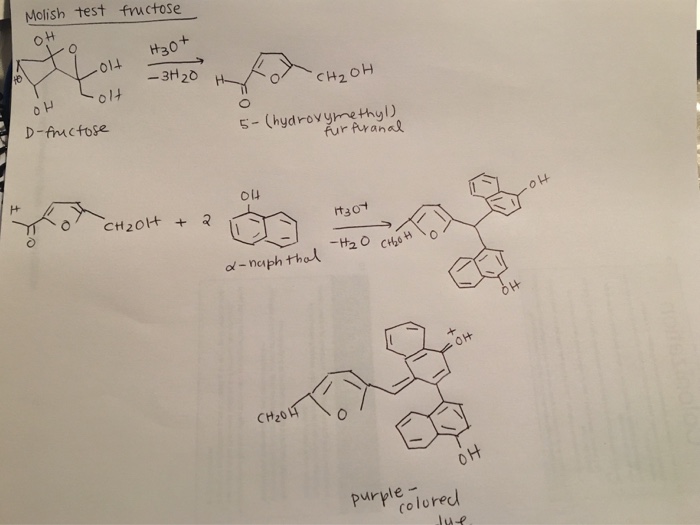 Molish test fructose
OH
O
OH
HO
OH
OH
D-fructose
H3O+
-3H2O
H
O
O
CH2OH
5-(hydroxymethyl)
furfuranal
H
O
O
CH2OH + 2
OH
α-naphthol
H3O+
-H2O
CH2OH
O
OH
OH
CH2OH
O
+
OH
OH
purple-
colored
dye